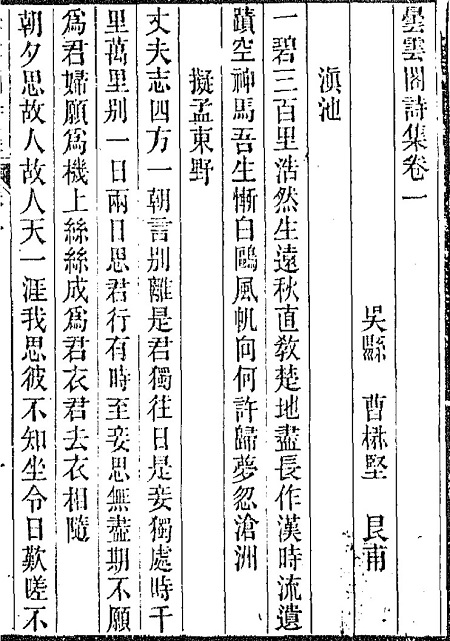 曇雲閣詩集卷一
吳縣 曹楙堅 艮甫
滇池
一碧三百里浩然生遠秋直敎楚地盡長作漢時流遺
蹟空神馬吾生慚白鷗風帆向何許歸夢忽滄洲
擬孟東野
丈夫志四方一朝言别離是君獨往日是妾獨處時千
里萬里别一日兩日思君行有時至妾思無盡期不願
爲君婦願爲機上絲絲成爲君衣君去衣相隨
朝夕思故人故人天一涯我思彼不知坐令日歎嗟不